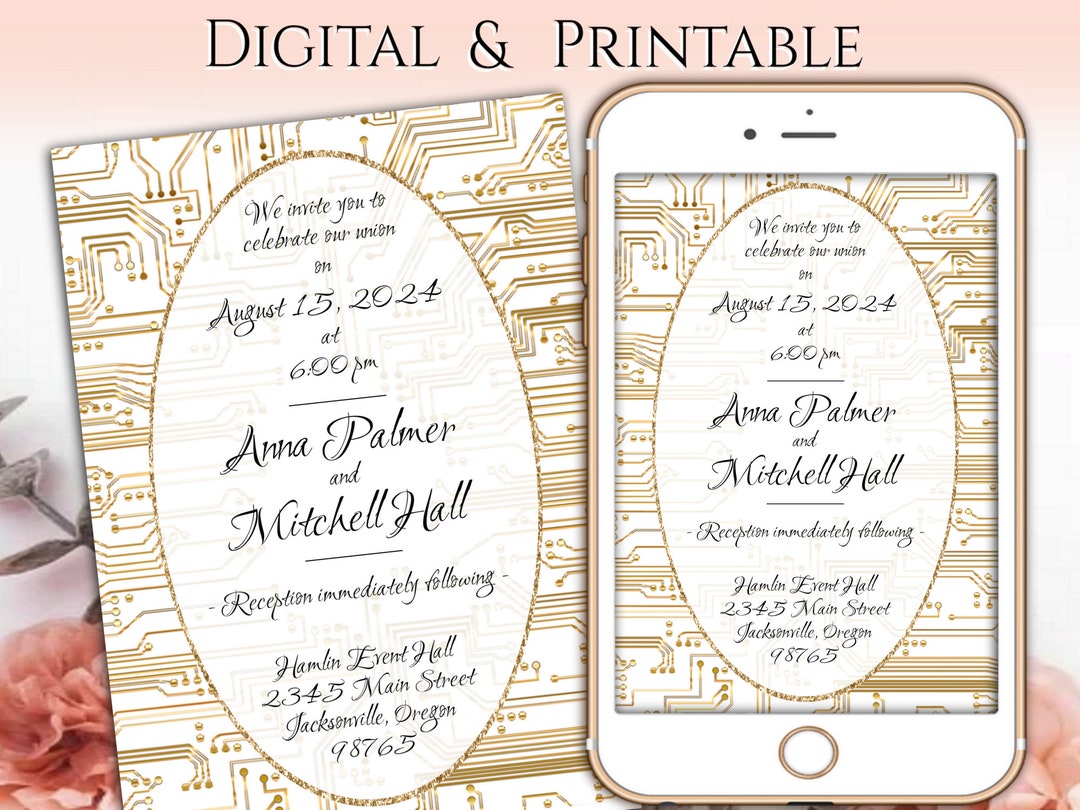 Digital & Printable
We invite you to
celebrate our union
on
August 15, 2024
at
6:00 pm
Anna Palmer
and
Mitchell Hall
- Reception immediately following -
Hamlin Event Hall
2345 Main Street
Jacksonville, Oregon
98765
We invite you to
celebrate our union
on
August 15, 2024
at
6:00 pm
Anna Palmer
and
Mitchell Hall
- Reception immediately following -
Hamlin Event Hall
2345 Main Street
Jacksonville, Oregon
98765